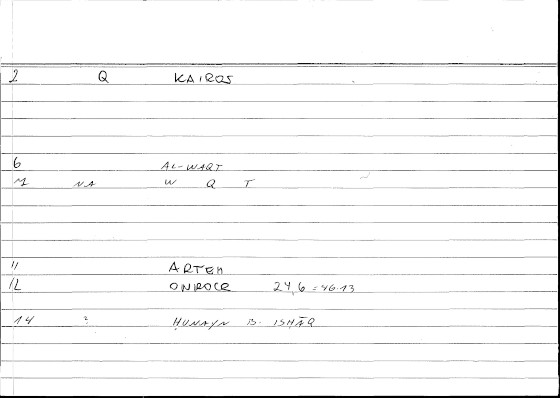 2 Q KAIROS
6 AL-WAQT
M NA W Q T
11 ARTEM
12 ONIROCR 24,6 = 46.13
14 ? HUNAYN B. ISHĀQ